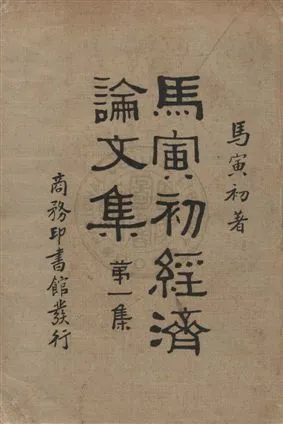 馬寅初著
馬寅初經濟
論文集 第一集
商務印書館發行